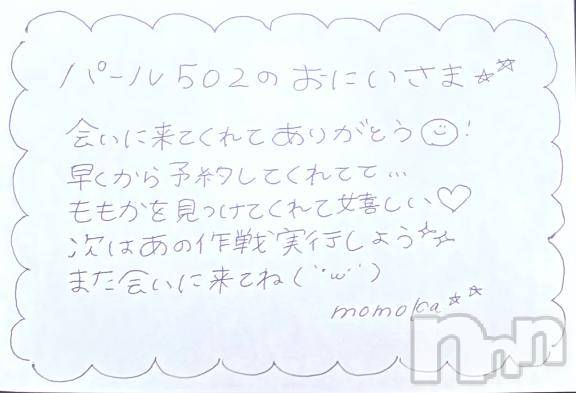 パール502のおにいさま☆☆
会いに来てくれてありがとう☺!
早くから予約してくれてて…
ももかを見つけてくれて嬉しい♡
次はあの作戦実行しよう☆☆
また会いに来てね(¨ω¨)
momoka☆☆
nnn